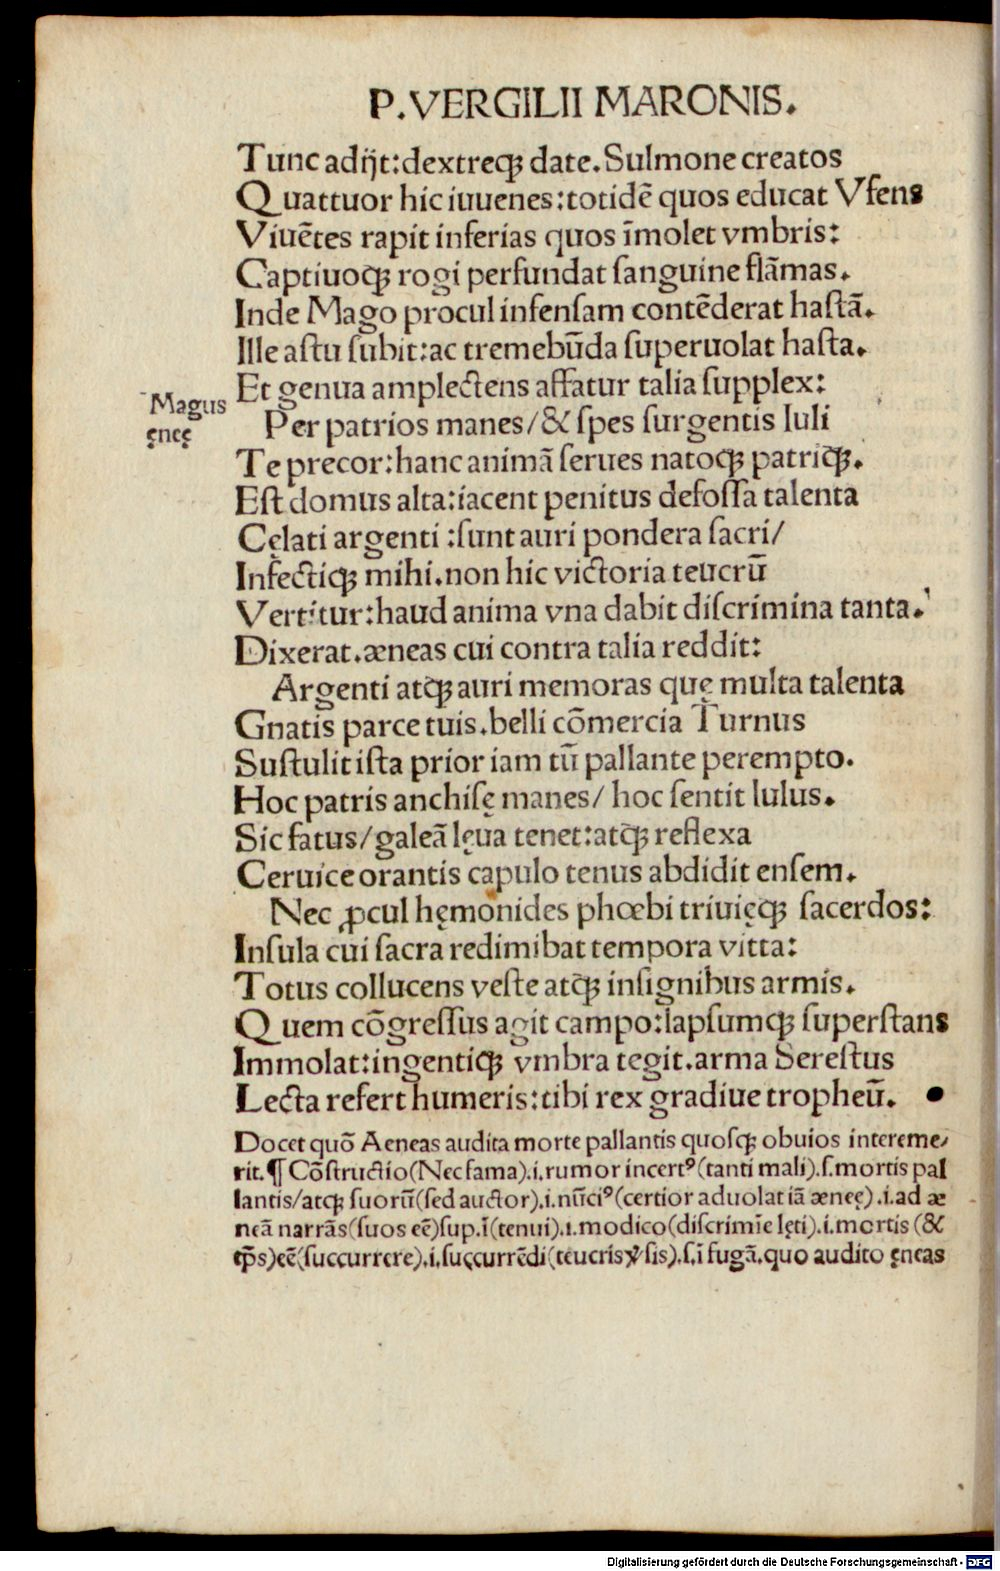 P.VERGILII MARONIS.
Tunc adijt:dextreqꝫ date.Sulmone creatos
Quattuor hic iuuenes:totidē quos educat Vfens
Viuētes rapit inferias quos īmolet vmbris:
Captiuoqꝫ rogi perfundat sanguine flāmas.
Inde Mago procul infensam contēderat hastā.
Ille astu subit:ac tremebūda superuolat hasta.
Et genua amplectens affatur talia supplex:
Magus
ęnęę
Per patrios manes/& spes surgentis Iuli
Te precor:hanc animā serues natoqꝫ patriqꝫ.
Est domus alta:iacent penitus defossa talenta
Cęlati argenti :sunt auri pondera sacri/
Infectiqꝫ mihi.non hic victoria teucrū
Vertitur:haud anima vna dabit discrimina tanta.
Dixerat.æneas cui contra talia reddit:
Argenti atqꝫ auri memoras quę multa talenta
Gnatis parce tuis.belli cōmercia Turnus
Sustulit ista prior iam tū pallante perempto.
Hoc patris anchisę manes/ hoc sentit Iulus.
Sic fatus/galeā lęua tenet:atqꝫ reflexa
Ceruice orantis capulo tenus abdidit ensem.
Nec ꝓcul hęmonides phœbi triuięqꝫ sacerdos:
Insula cui sacra redimibat tempora vitta:
Totus collucens veste atqꝫ insignibus armis.
Quem cōgressus agit campo:lapsumqꝫ superstans
Immolat:ingentiqꝫ vmbra tegit.arma Serestus
Lecta refert humeris:tibi rex gradiue tropheū.
Docet quō Aeneas audita morte pallantis quosqꝫ obuios intereme/
rit.¶ Cōstructio(Nec fama).i.rumor incertꝰ(tanti mali).s.mortis pal
lantis/atqꝫ suorū(sed auctor).i.nūciꝰ(certior aduolat iā æneę).i.ad æ
neā narrās(suos eē)sup.ī(tenui).i.modico(discrimīe lęti).i.mortis (&
tp̄s)eē(succurrere).i.succurrēdi(teucris sis).s.ī fugā.quo audito ęneas
Digitalisierung gefördert durch die Deutsche Forschungsgemeinschaft - DFG